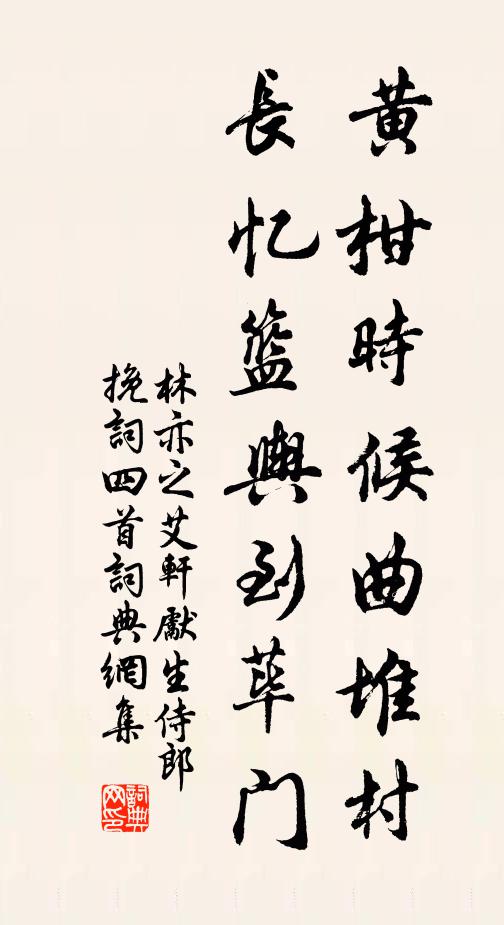 黄柑時候曲堆村
長忆籃輿到蓽門
林亦之艾軒獻生侍郎
挽詞四首詞典網集
詞典
网印